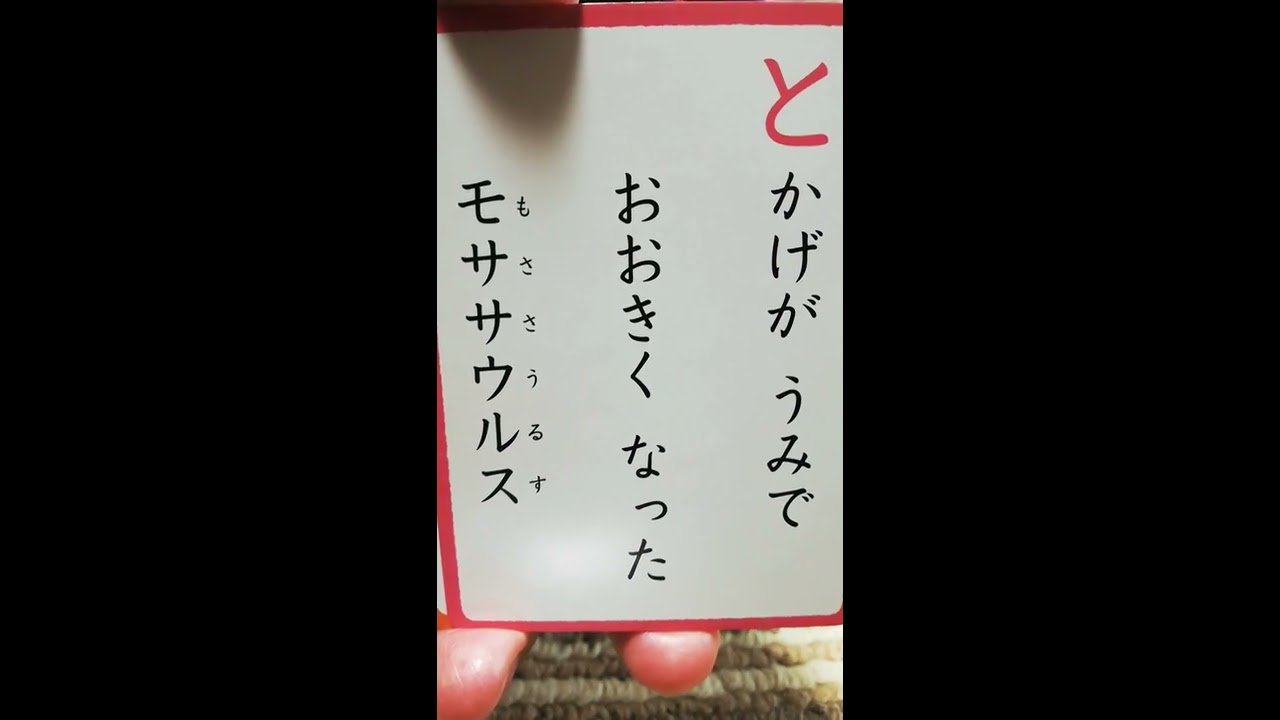 とかげが うみで
おおきく なった
モササウルス
もささうるす